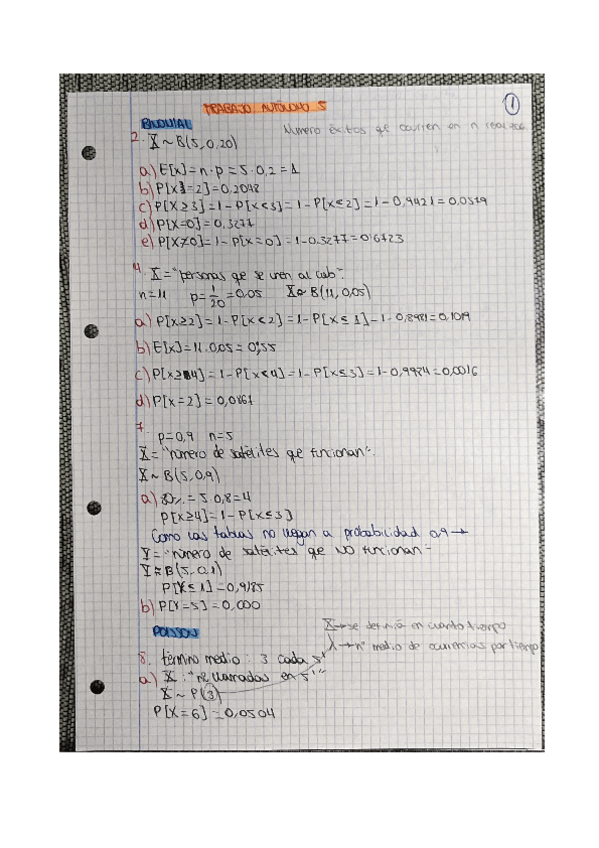 TRABAJO AUTÓNOMO 5
1
BINOMIAL
Número éxitos que ocurren en n
2. X ~ B(5, 0,20)
a) E[x] = n · p = 5 · 0,2 = 1
b) P[X = 2] = 0,2048
c) P[X ≥ 3] = 1 - P[X < 3] = 1 - P[X ≤ 2] = 1 - 0,9421 = 0,0579
d) P[X = 0] = 0,3277
e) P[X ≠ 0] = 1 - P[X = 0] = 1 - 0,3277 = 0'6723
4. X = "personas que se unen al club".
n = 11 p = 1/20 = 0,05 X ~ B(11, 0,05)
a) P[X ≥ 2] = 1 - P[X < 2] = 1 - P[X ≤ 1] = 1 - 0,8981 = 0,1019
b) E[X] = 11 · 0,05 = 0,55
c) P[X ≥ 4] = 1 - P[X < 4] = 1 - P[X ≤ 3] = 1 - 0,9984 = 0,0016
d) P[X = 2] = 0,0867
7.
p = 0,9 n = 5
X = "número de satélites que funcionan".
X ~ B(5, 0,9)
a) 80% = 5 · 0,8 = 4
P[X ≥ 4] = 1 - P[X ≤ 3]
Como las tablas no llegan a probabilidad 0,9 →
Y = "número de satélites que NO funcionan"
Y ~ B(5, 0,1)
P[Y ≤ 1] = 0,9185
b) P[Y = 5] = 0,000
POISSON
X → se definió en cuanto tiempo
λ → nº medio de ocurrencias por tiempo
8. término medio : 3 cada 5'
a) X : "nº llamadas en 5'"
X ~ P(3)
P[X = 6] = 0,0504